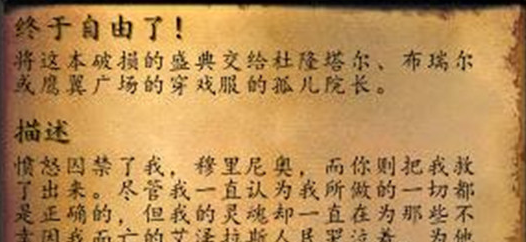 终于自由了！
将这本破损的盛典交给杜隆塔尔、布瑞尔
或鹰翼广场的穿戏服的孤儿院长。
描述
愤怒囚禁了我，穆里尼奥，而你则把我救
了出来。尽管我一直认为我所做的一切都
是正确的，但我的灵魂却一直在为那些不
幸因我而亡的艾泽拉斯人民哭泣着。为他